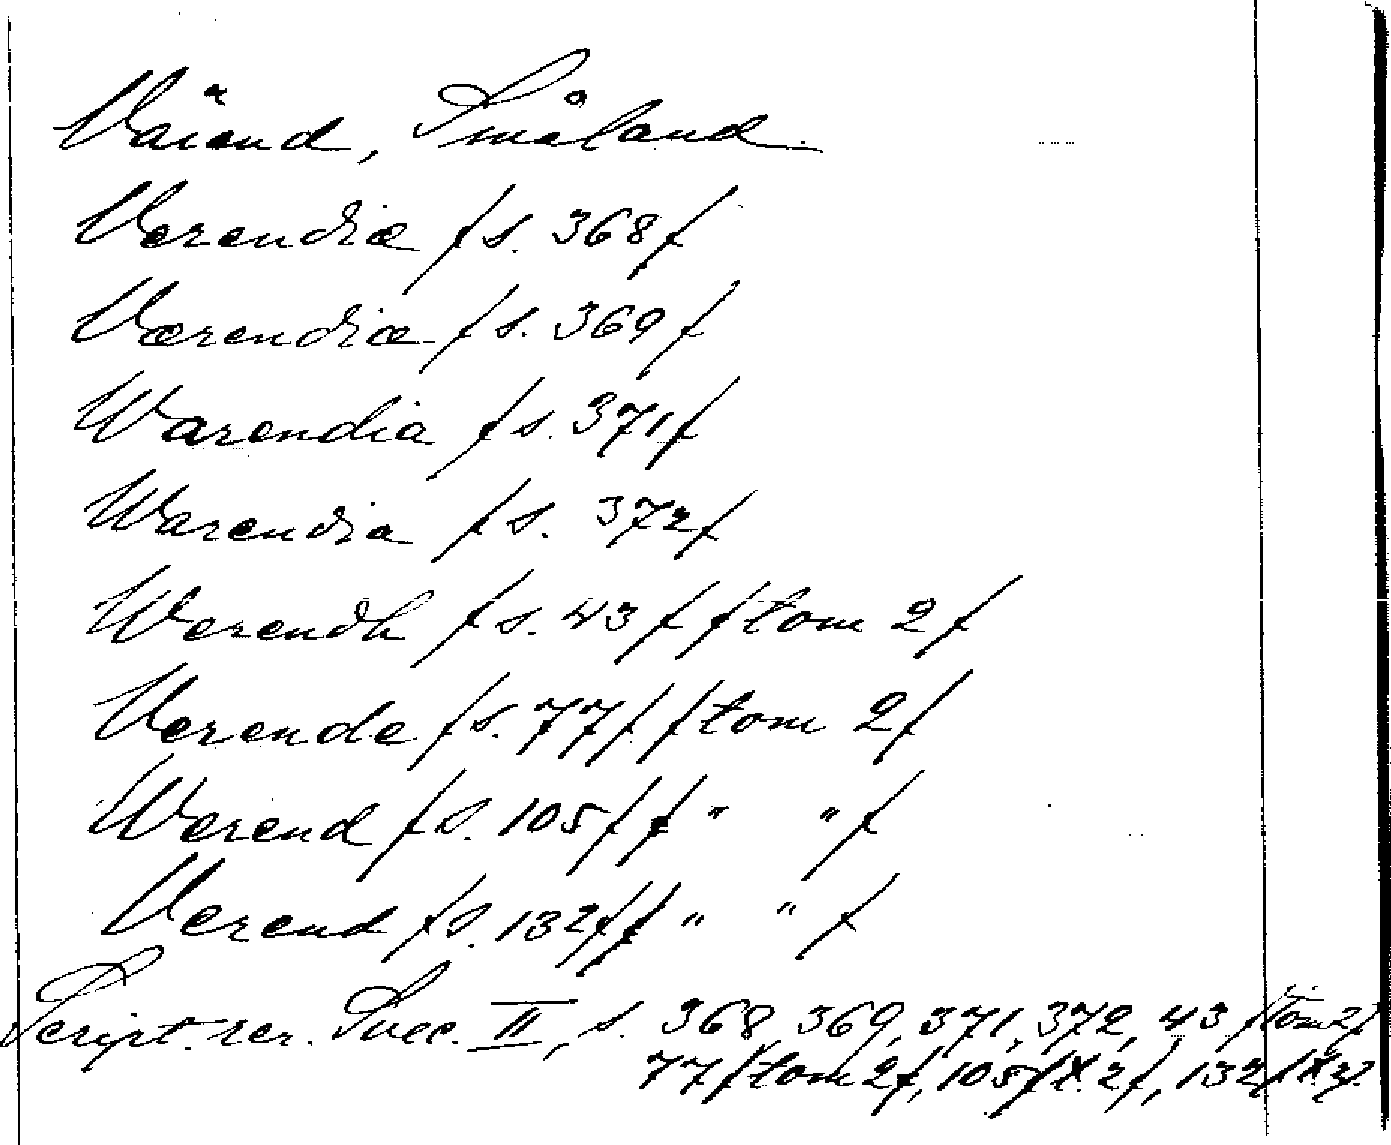 Värend, Småland.
Verendiæ /s. 368/
Værendiæ /s. 369/
Warendia /s. 371/
Warendia /s. 372/
Werendh /s. 43/ /tom 2/
Verende /s. 77/ /tom 2/
Werend /s. 105/ / " " /
Verend /s. 132/ / " " /
Script. rer. Svec. II, s. 368, 369, 371, 372, 43 /tom 2/
77 /tom 2/, 105 /t. 2/, 132 /t. 2/.